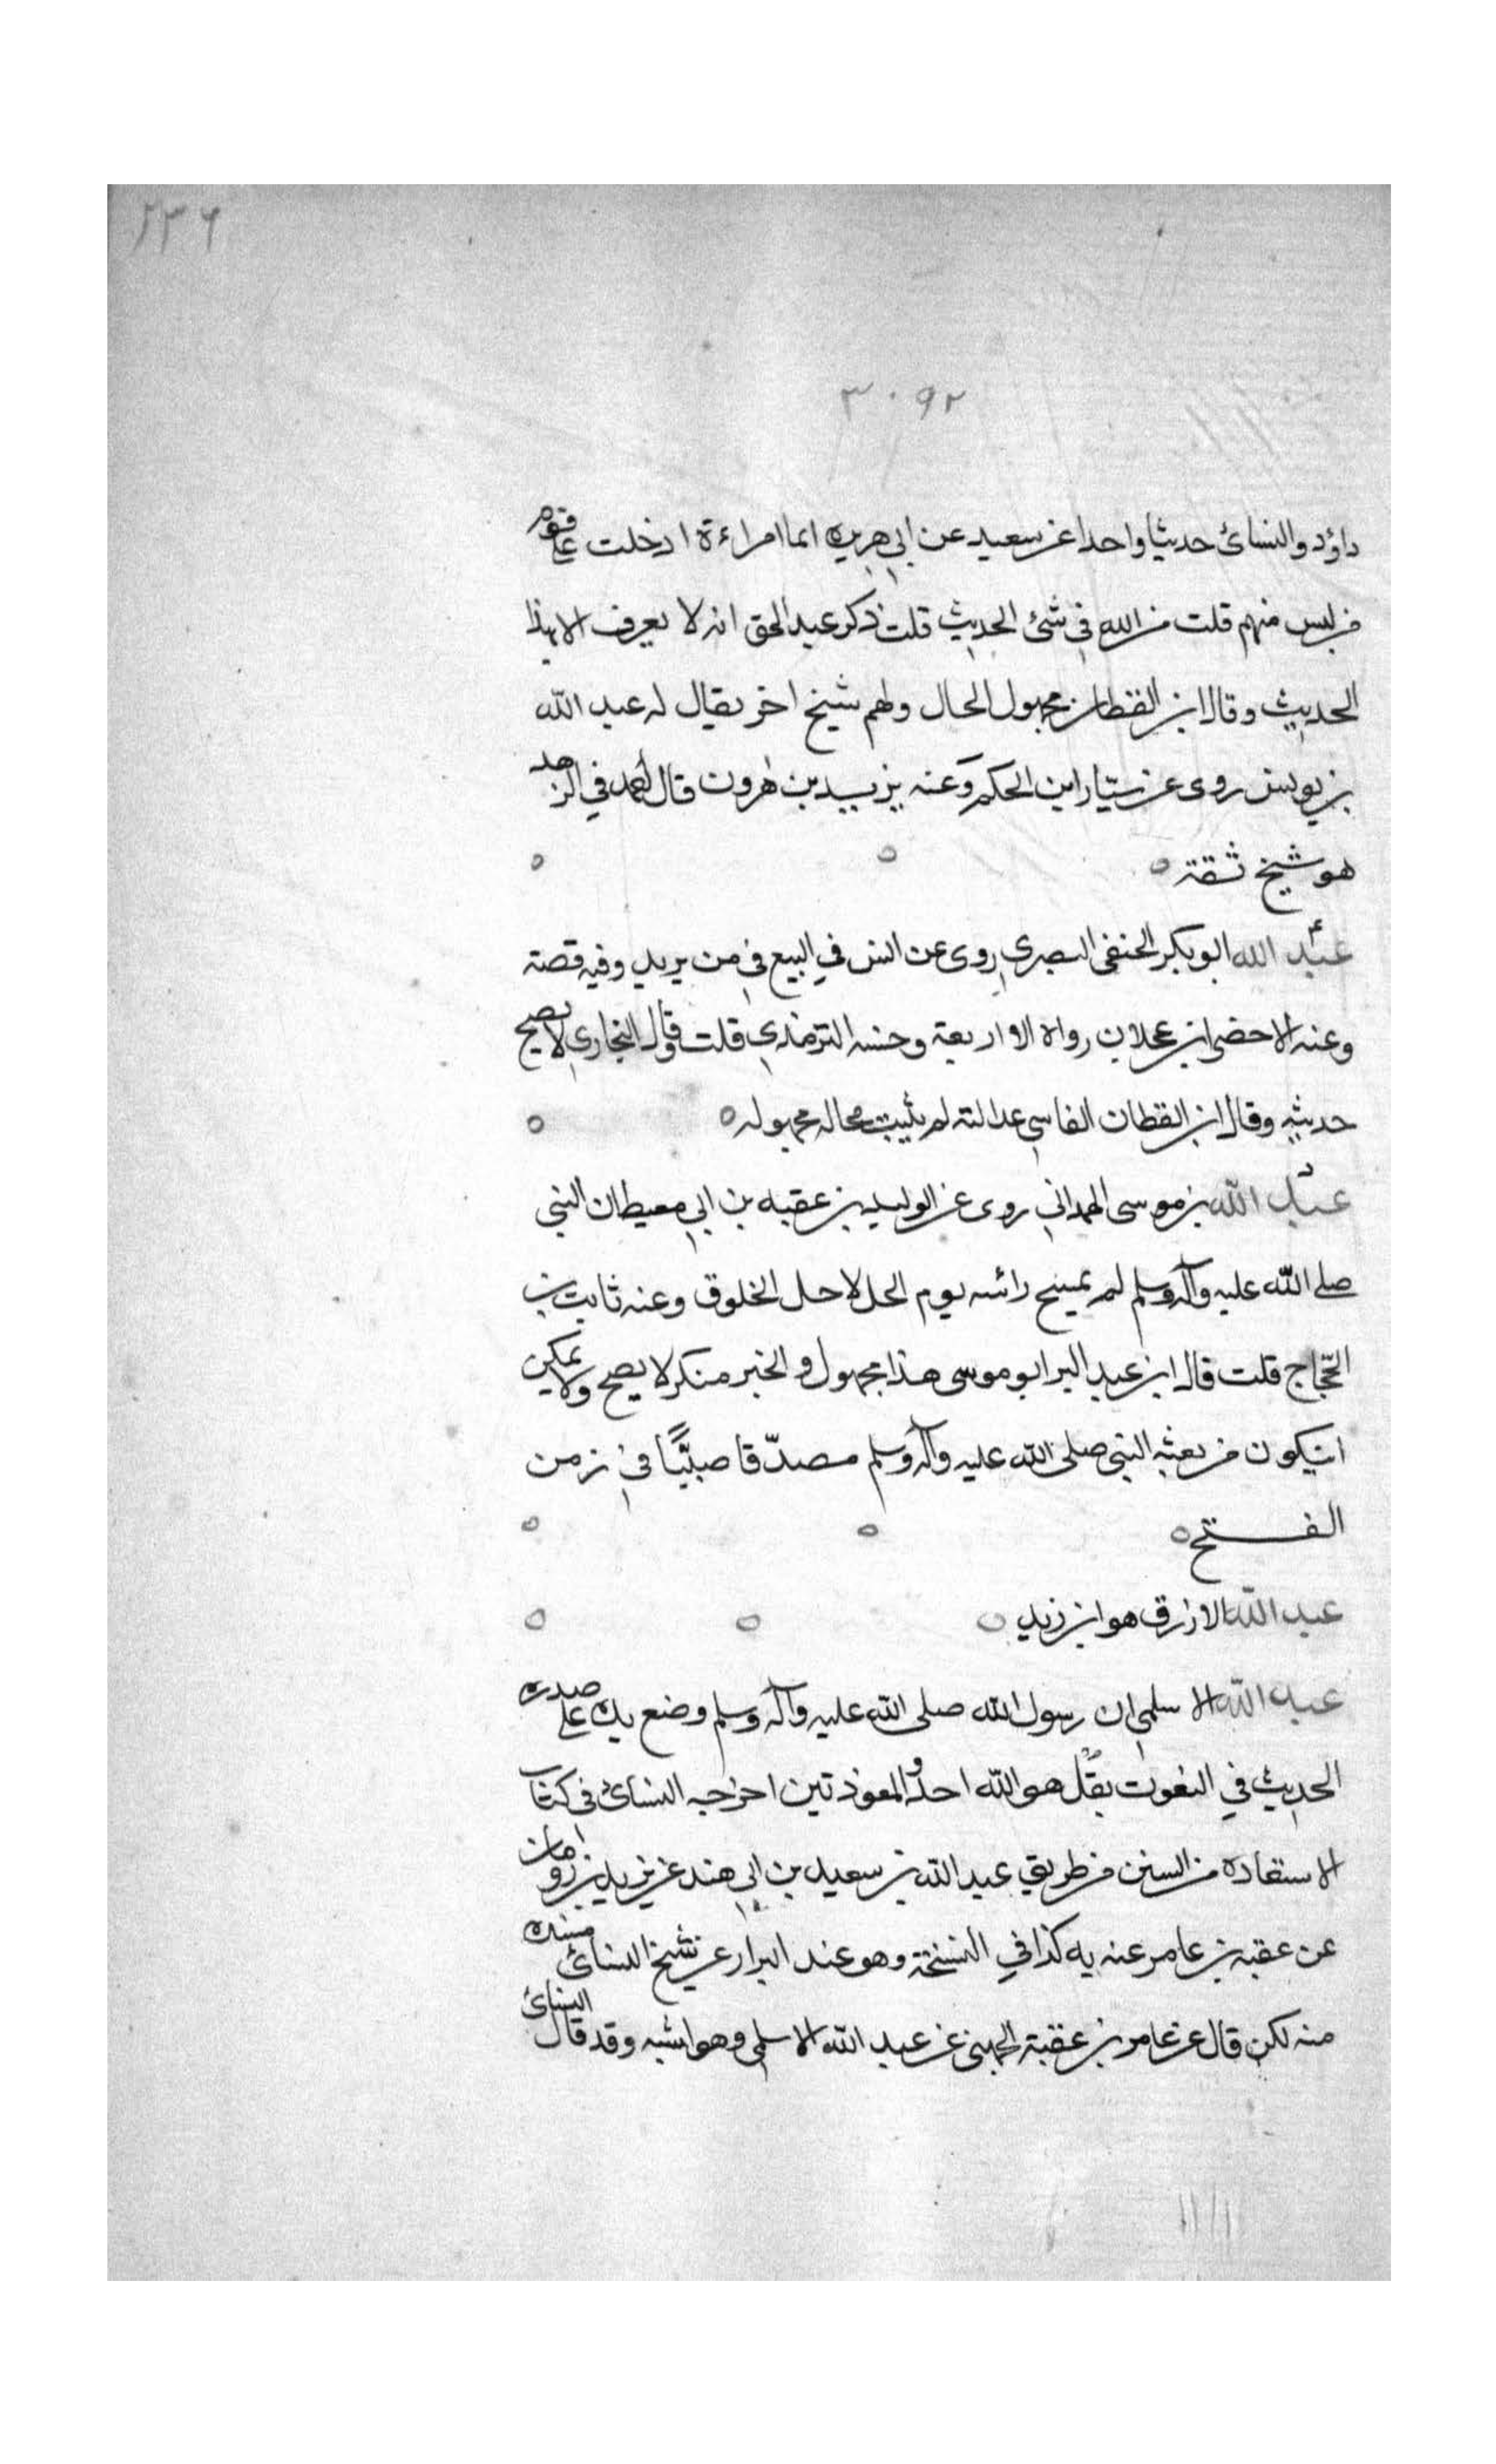 ٢٣٦
٣٠٩٢
داؤد والنسائ حديثا واحدا عن سعيد عن ابي هريره ايما امراءة ادخلت على قوم
من ليس منهم فليست من الله في شئ الحديث قلت ذكر عبد الحق انه لا يعرف الا بهذا
الحديث وقال ابن القطان مجهول الحال ولهم شيخ اخر يقال له عبد الله
بن يونس روى عن سيّار ابن الحكم وعنه يزيد بن هرون قال احمد في الزهد
هو شيخ ثقة ٥ ٥ ٥
عبد الله ابو بكر الحنفي البصري روى عن انس في البيع في من يريد وفيه قصة
وعنه الاخضر ابن عجلان رواه الاربعة وحسنه الترمذي قلت وقال البخاري لا يصح
حديثه وقال ابن القطان الفاسي عدالته لم يثبت محاله مجهوله ٥ ٥
عبد الله بن موسى الهمداني روى عن الوليد بن عقبه بن ابي معيط ان النبي
صلى الله عليه وآله وسلم لم يمسح رائسه يوم الحل لاجل الخلوق وعنه ثابت بن
الحّجاج قلت قال ابن عبد البر ابو موسى هذا مجهول والخبر منكر لا يصح ولا يمكن
ان يكون من بعثه النبي صلى الله عليه وآله وسلم مصدّقا صبيًّا في زمن
الفتح ٥ ٥ ٥
عبد الله الازرق هو ابن زيد ٥ ٥ ٥
عبد الله الاسلمي ان رسول الله صلى الله عليه وآله وسلم وضع يده على صدره
الحديث في التعوذ بقل هو الله احد والمعوذتين اخرجه النسائ في كتاب
الاستعاذه من السنن من طريق عبد الله بن سعيد بن ابي هند عن يزيد بن رومان
عن عقبه بن عامر عنه به كذا في النسخة وهو عند البزار عن شيخ النسائ مسنده
منه لكن قال عن عامر بن عقبة الجهني عن عبد الله الاسلمي وهو اشبه وقد قال النسائ